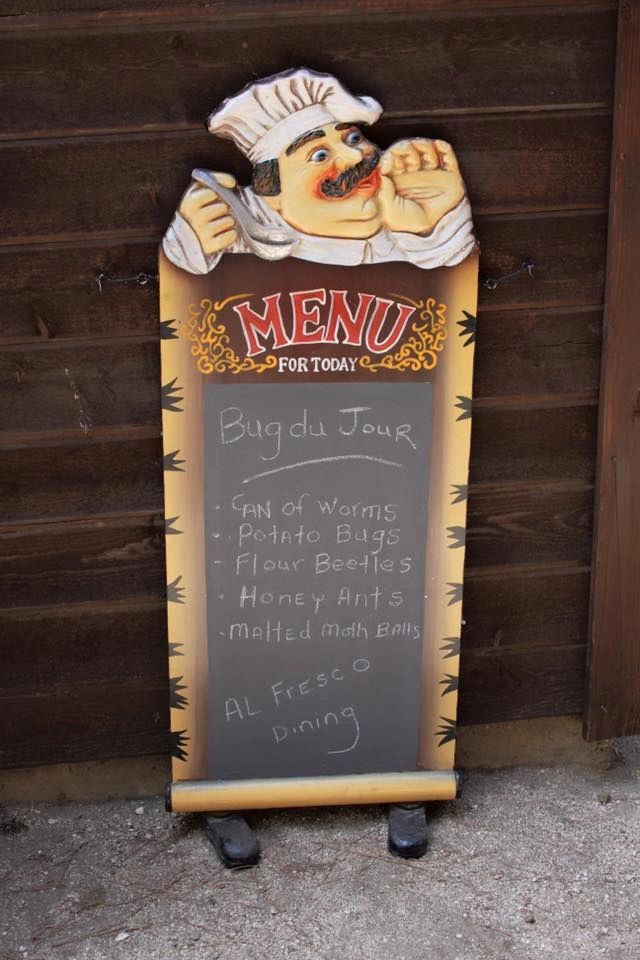 MENU
FOR TODAY
Bug du Jour
- CAN of Worms
- Potato Bugs
- Flour Beetles
- Honey Ants
- Malted Moth Balls
AL FRESCO
Dining